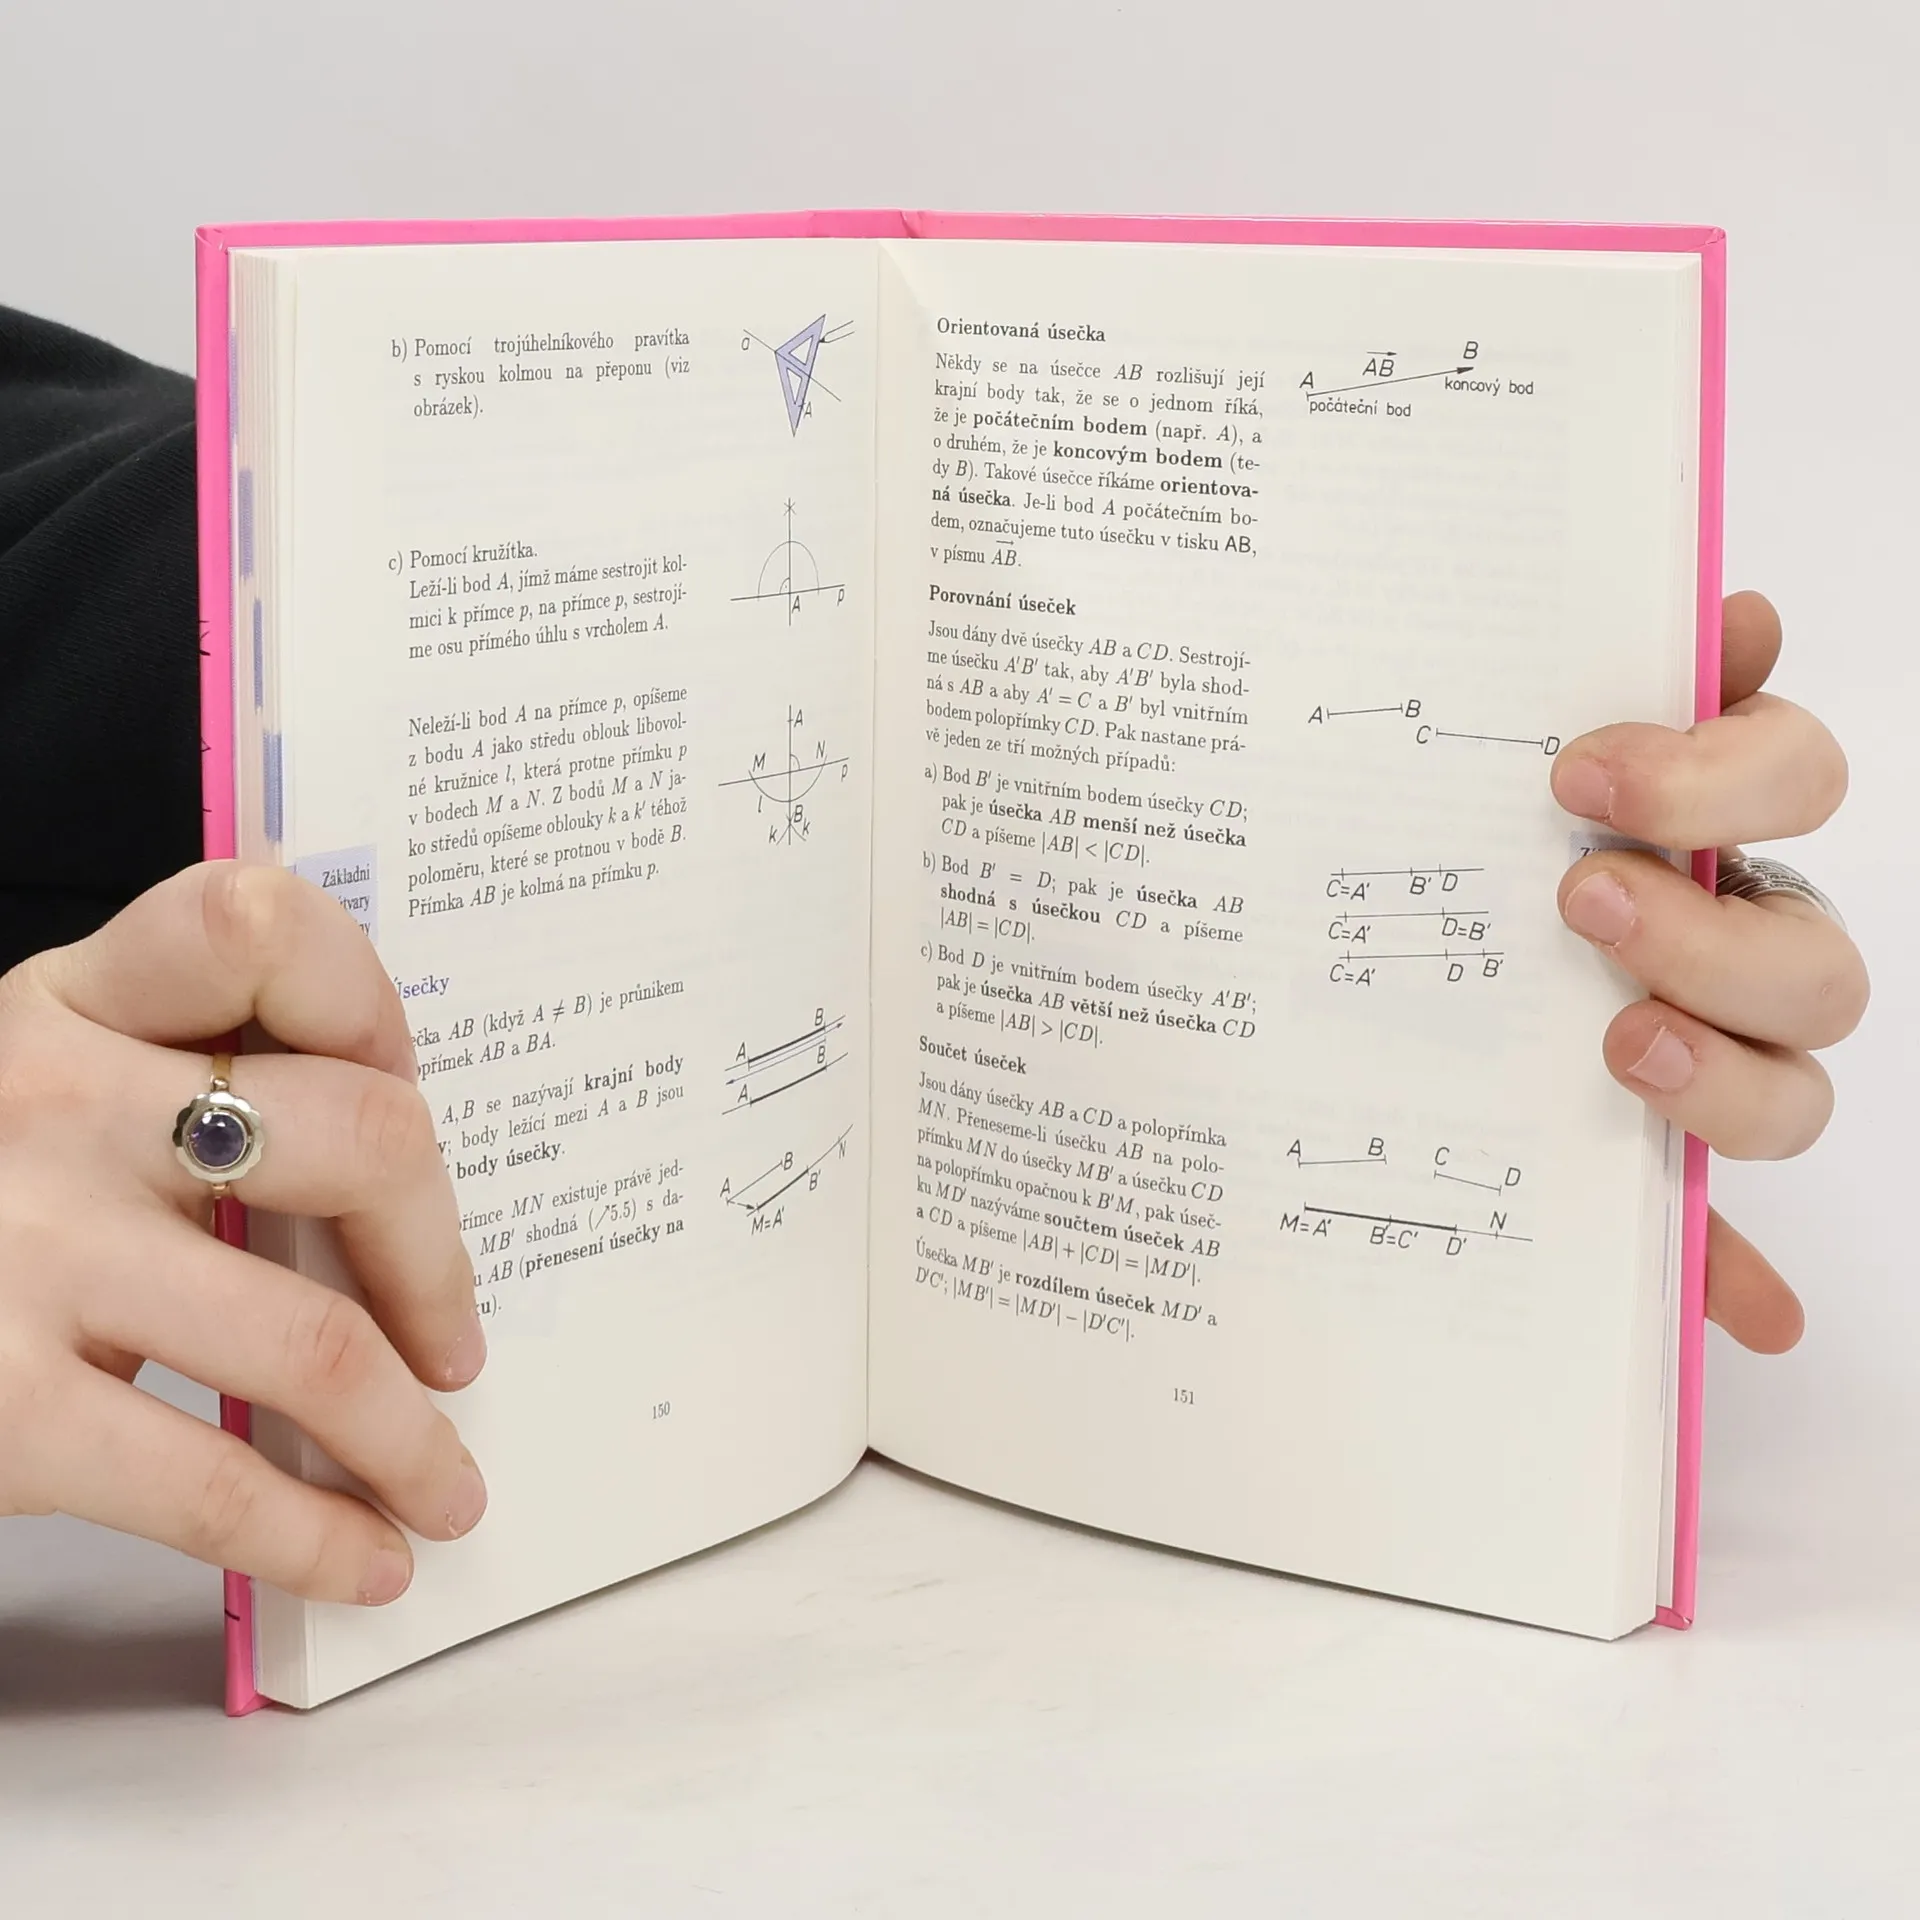 b) Pomocí trojúhelníkového pravítka
s ryskou kolmou na přeponu (viz
obrázek).
a
A
c) Pomocí kružítka.
Leží-li bod A, jímž máme sestrojit kol-
mici k přímce p, na přímce p, sestrojí-
me osu přímého úhlu s vrcholem A.
A p
Neleží-li bod A na přímce p, opíšeme
z bodu A jako středu oblouk libovol-
né kružnice l, která protne přímku p
v bodech M a N. Z bodů M a N ja-
ko středů opíšeme oblouky k a k' téhož
poloměru, které se protnou v bodě B.
Přímka AB je kolmá na přímku p.
A
M N p
l B
k' k
Základní
útvary
Úsečky
AB (když A ≠ B) je průnikem
AB a BA.
A, B se nazývají krajní body
body ležící mezi A a B jsou
body úsečky.
MN existuje právě jed-
MB' shodná (↗5.5) s da-
AB (přenesení úsečky na
A B
A B
A B B' N
M=A'
150
Orientovaná úsečka
Někdy se na úsečce AB rozlišují její
krajní body tak, že se o jednom říká,
že je počátečním bodem (např. A), a
o druhém, že je koncovým bodem (te-
dy B). Takové úsečce říkáme orientova-
ná úsečka. Je-li bod A počátečním bo-
dem, označujeme tuto úsečku v tisku AB,
v písmu AB.
A AB B
počáteční bod koncový bod
Porovnání úseček
Jsou dány dvě úsečky AB a CD. Sestrojí-
me úsečku A'B' tak, aby A'B' byla shod-
ná s AB a aby A' = C a B' byl vnitřním
bodem polopřímky CD. Pak nastane prá-
vě jeden ze tří možných případů:
A B
C D
a) Bod B' je vnitřním bodem úsečky CD;
pak je úsečka AB menší než úsečka
CD a píšeme |AB| < |CD|.
b) Bod B' = D; pak je úsečka AB
shodná s úsečkou CD a píšeme
|AB| = |CD|.
c) Bod D je vnitřním bodem úsečky A'B';
pak je úsečka AB větší než úsečka CD
a píšeme |AB| > |CD|.
C=A' B' D
C=A' D=B'
C=A' D B'
Součet úseček
Jsou dány úsečky AB a CD a polopřímka
MN. Přeneseme-li úsečku AB na polo-
přímku MN do úsečky MB' a úsečku CD
na polopřímku opačnou k B'M, pak úseč-
ku MD' nazýváme součtem úseček AB
a CD a píšeme |AB| + |CD| = |MD'|.
Úsečka MB' je rozdílem úseček MD' a
D'C'; |MB'| = |MD'| − |D'C'|.
A B C D
M=A' B'=C' D' N
151